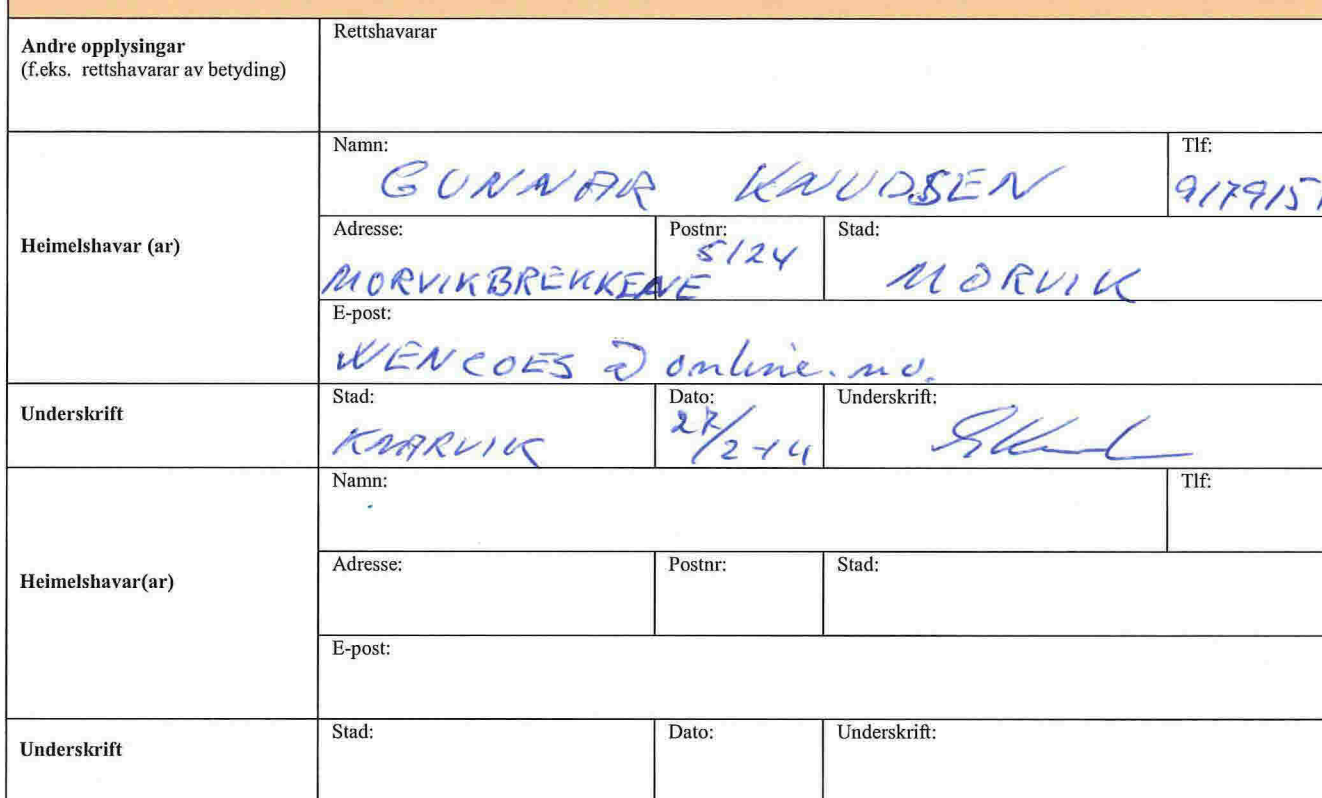 Andre opplysingar
(f.eks. rettshavarar av betyding)
Rettshavarar
Heimelshavar (ar)
Namn:
GUNNAR KNUDSEN
Tlf:
9179151
Adresse:
MORVIKBREKKENE
Postnr:
5124
Stad:
MORVIK
E-post:
WENCOES @ online.no.
Underskrift
Stad:
KNARVIK
Dato:
27/2-14
Underskrift:
Heimelshavar(ar)
Namn:
Tlf:
Adresse:
Postnr:
Stad:
E-post:
Underskrift
Stad:
Dato:
Underskrift: